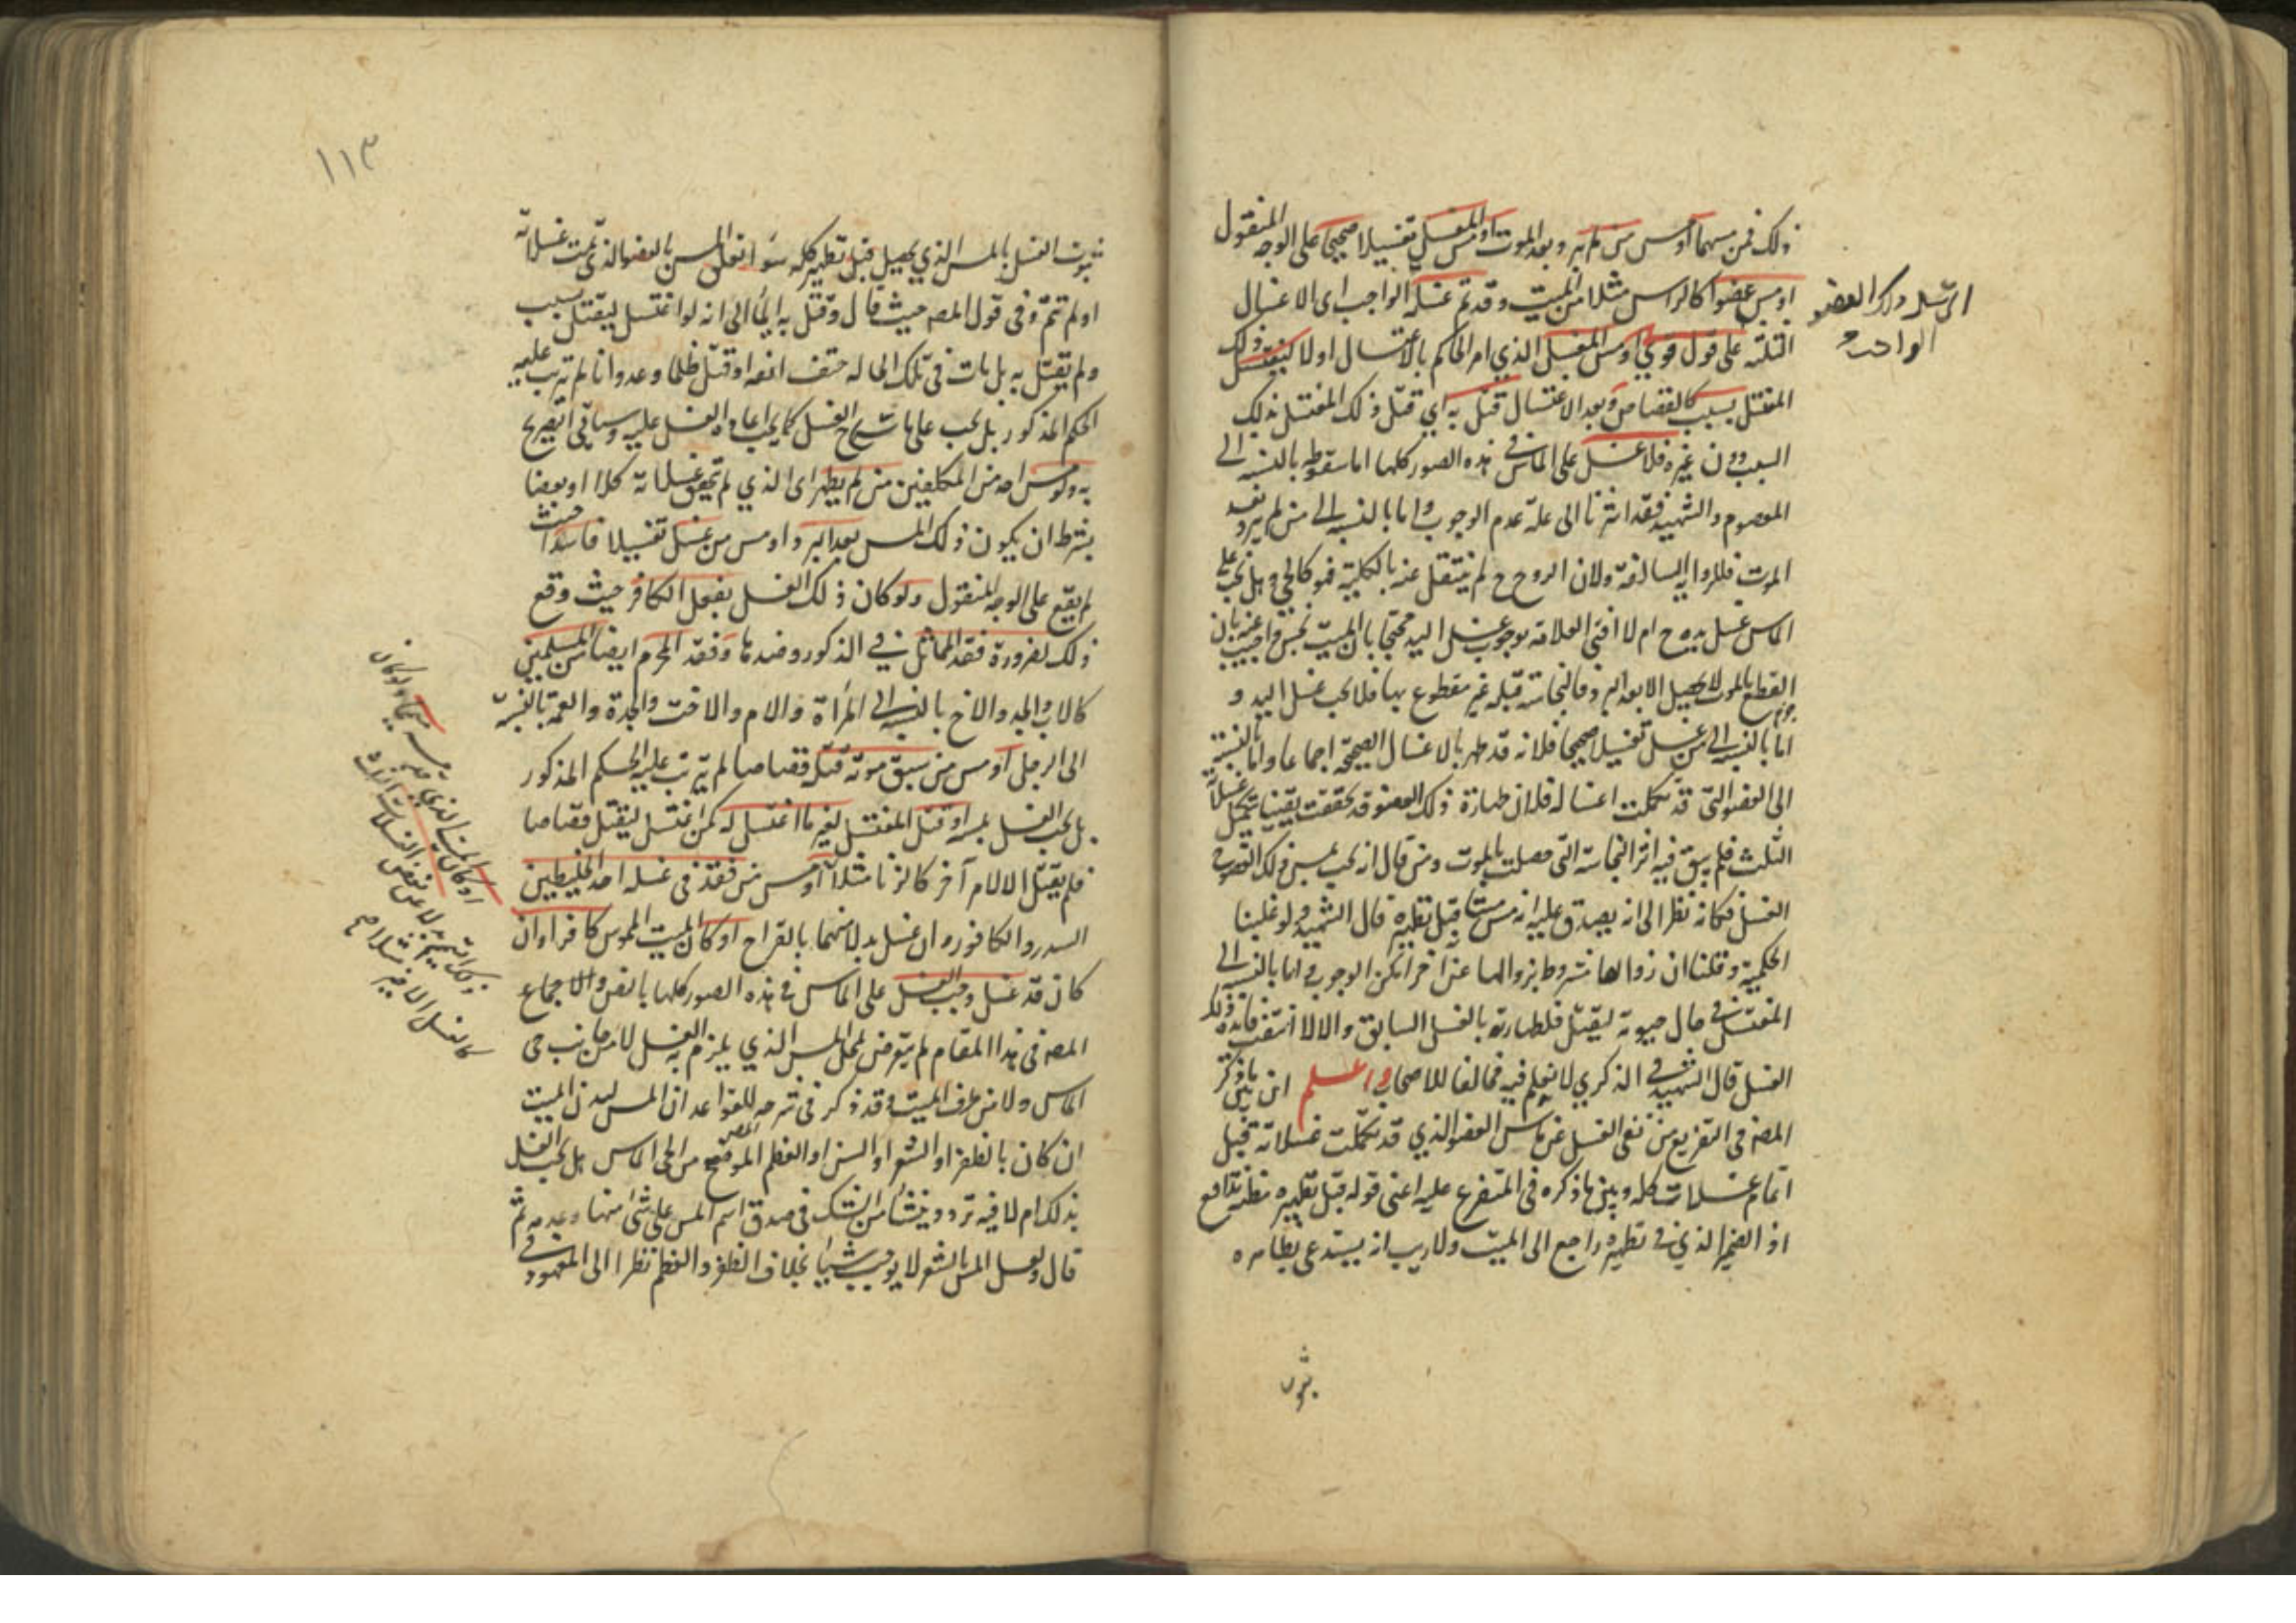 ذلك فمن مسهما او مس من لم يبرد بعد الموت او مس المغسل تغسيلا صحيحا على الوجه المنقول
او مس عضوا كالراس مثلا من الميت وقد تم غسله الواجب اى الاغسال
الثلثة على قول قوي او مس المغسل الذي امر الحاكم بالاغتسال اولا ليقتل ذلك
المغتسل بسبب كالقصاص وبعد الاغتسال قتل به اي قتل ذلك المغتسل بذلك
السبب دون غيره فلا غسل على الماس في هذه الصور كلها اما سقوطه بالنسبة الى
المعصوم والشهيد فقد اشرنا الى علة عدم الوجوب واما بالنسبة الى من لم يبرد بعد
الموت فللرواية السالفة ولان الروح ح لم ينتقل عنه بالكلية فهو كالحي وهل يجب على
الماس غسل يده ح ام لا افتى العلامة بوجوب غسل اليد محتجا بان الميت نجس واجيب عنه بان
القطع بالموت لا يحصل الا بعد البرد فالنجاسة قبله غير مقطوع بها فلا يجب غسل اليد و
اما بالنسبة الى من غسل تغسيلا صحيحا فلانه قد طهر بالاغسال الصحيحة اجماعا واما بالنسبة
الى العضو التى قد تكملت اغساله فلان طهارة ذلك العضو قد تحققت يقينا بتكمل غسلاته
الثلث فلم يبق فيه اثر النجاسة التى حصلت بالموت ومن قال انه يجب بمس ذلك العضو
الغسل فكانه نظر الى انه يصدق عليه انه مس ميتا قبل تطهيره قال الشهيد ولو غلبنا
الحكمية وقلنا ان زوالها مشروط بزوالها عن آخر امكن الوجوب واما بالنسبة الى
المغتسل في حال حيوته ليقتل فلطهارته بالغسل السابق والا لا انتفت فايدة ذلك
الغسل قال الشهيد في الذكرى لا نعلم فيه مخالفا للاصحاب واعلم ان بين ما ذكر
المصه فى التفريع من نفى الغسل عن ماس العضو الذي قد تكملت غسلاته قبل
اتمام غسلات كله وبين ما ذكره فى المتفرع عليه اعنى قوله قبل تطهيره مظنة تدافع
اذ الضمير الذي في تطهيره راجع الى الميت ولا ريب انه يستدعى بظاهره
ثبوت
الواجب
١١٣
ثبوت الغسل بالمس الذي يحصل قبل تطهير كله سواء تعلق المس بالعضو الذي تمت غسلاته
او لم تتم وفى قول المصه حيث قال وقتل به ايماء الى انه لو اغتسل ليقتل بسبب
ولم يقتل به بل مات فى تلك الحالة حتف انفه او قتل ظلما وعدوانا لم يترتب عليه
الحكم المذكور بل يجب على ماسه ح الغسل كما يجب اعادة الغسل عليه وسياتى التصريح
به ولو مس احد من المكلفين من لم يطهر اى الذي لم تتحقق غسلاته كلا او بعضا
بشرط ان يكون ذلك المس بعد البرد او مس من غسل تغسيلا فاسدا حيث
لم يقع على الوجه المنقول ولو كان ذلك الغسل بفعل الكافر حيث وقع
ذلك لضرورة فقد المماثل في الذكورة وضدها وفقد المحرم ايضا من المسلمين
كالاب والجد والاخ بالنسبة الى المرأة والام والاخت والجدة والعمة بالنسبة
الى الرجل او مس من سبق موته قتله قصاصا لم يترتب عليه الحكم المذكور
بل يجب الغسل بمسه او قتل المغتسل لغير ما اغتسل له كمن اغتسل ليقتل قصاصا
فلم يقتل الا لامر آخر كالزنا مثلا او مس من فقد فى غسله احد الخليطين
السدر والكافور وان غسل بدلا منهما بالقراح او كان الميت الممسوس كافرا وان
كان قد غسل وجب الغسل على الماس في هذه الصور كلها بالنص والاجماع
المصه فى هذا المقام لم يتعرض لمحل المس الذي يلزم به الغسل لا من جانب حى
الماس ولا من طرف الميت وقد ذكر فى شرحه للقواعد ان المس لبدن الميت
ان كان بالظفر او الشعر او السن او العظم الموضح من الحى الماس هل يجب الغسل
بذلك ام لا فيه تردد وينشأ من الشك فى صدق اسم المس على شئ منها وعدمه ثم
قال ولعل المس بالشعر لا يوجب شيئا بخلاف الظفر والعظم نظرا الى المعهود في